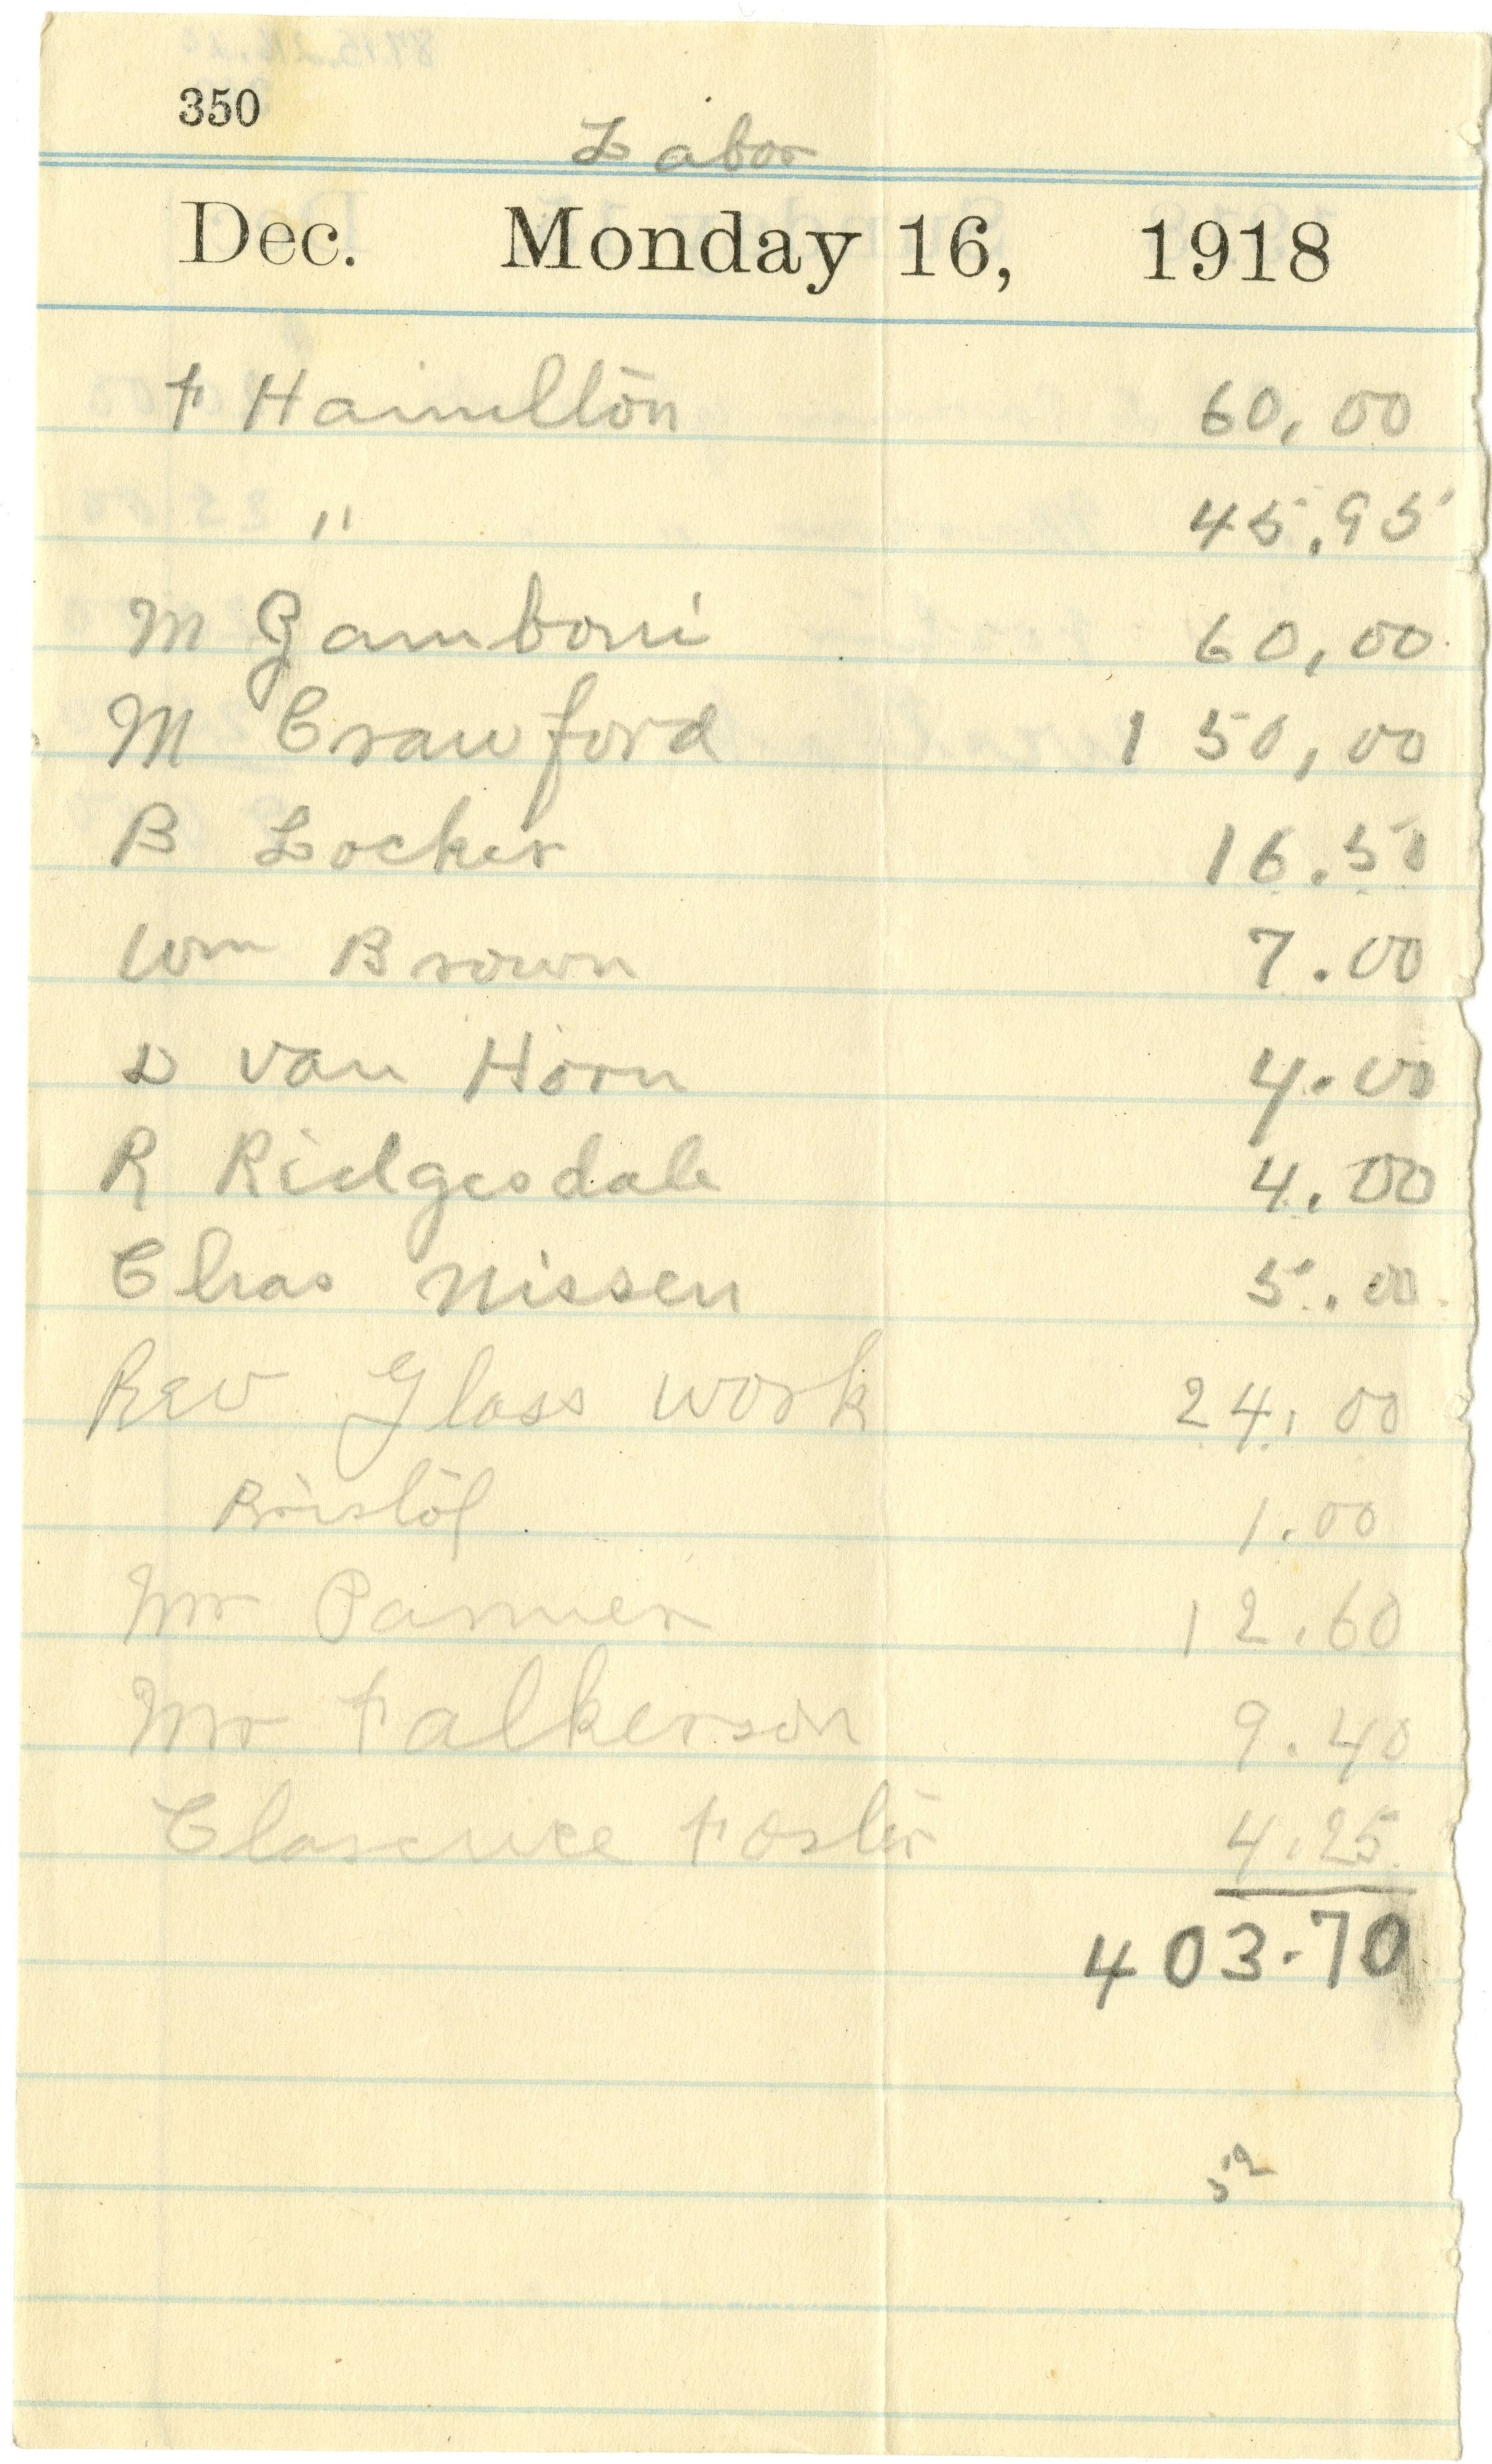 350
Labor
Dec. Monday 16, 1918
F Hamilton 60,00
" 45.95
M Gamboni 60,00
M Crawford 150,00
B Locker 16.50
Wm Brown 7.00
D Van Horn 4.00
R Ridgesdale 4.00
Chas Nissen 5.00
Rev Glass work 24.00
Bristol 1.00
Mr Parmer 12.60
Mr Falkerson 9.40
Clarence Foster 4.25
403.70